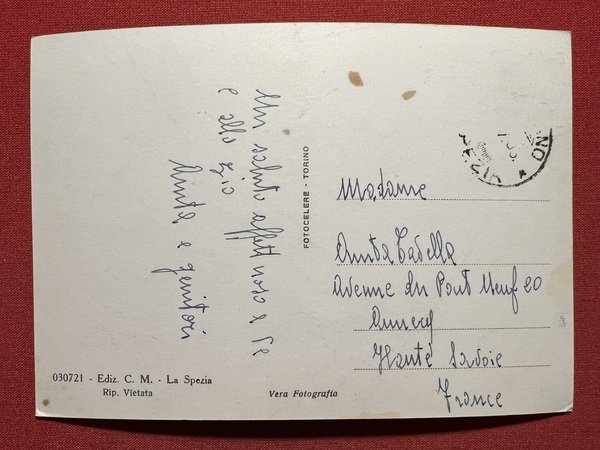 Un saluto affettuoso a te
e allo zio
Anita e genitori
FOTOCELERE - TORINO
Madame
Anita
Avenue du Pont Neuf 20
Annecy
Haute Savoie
France
030721 - Ediz. C. M. - La Spezia
Rip. Vietata
Vera Fotografia